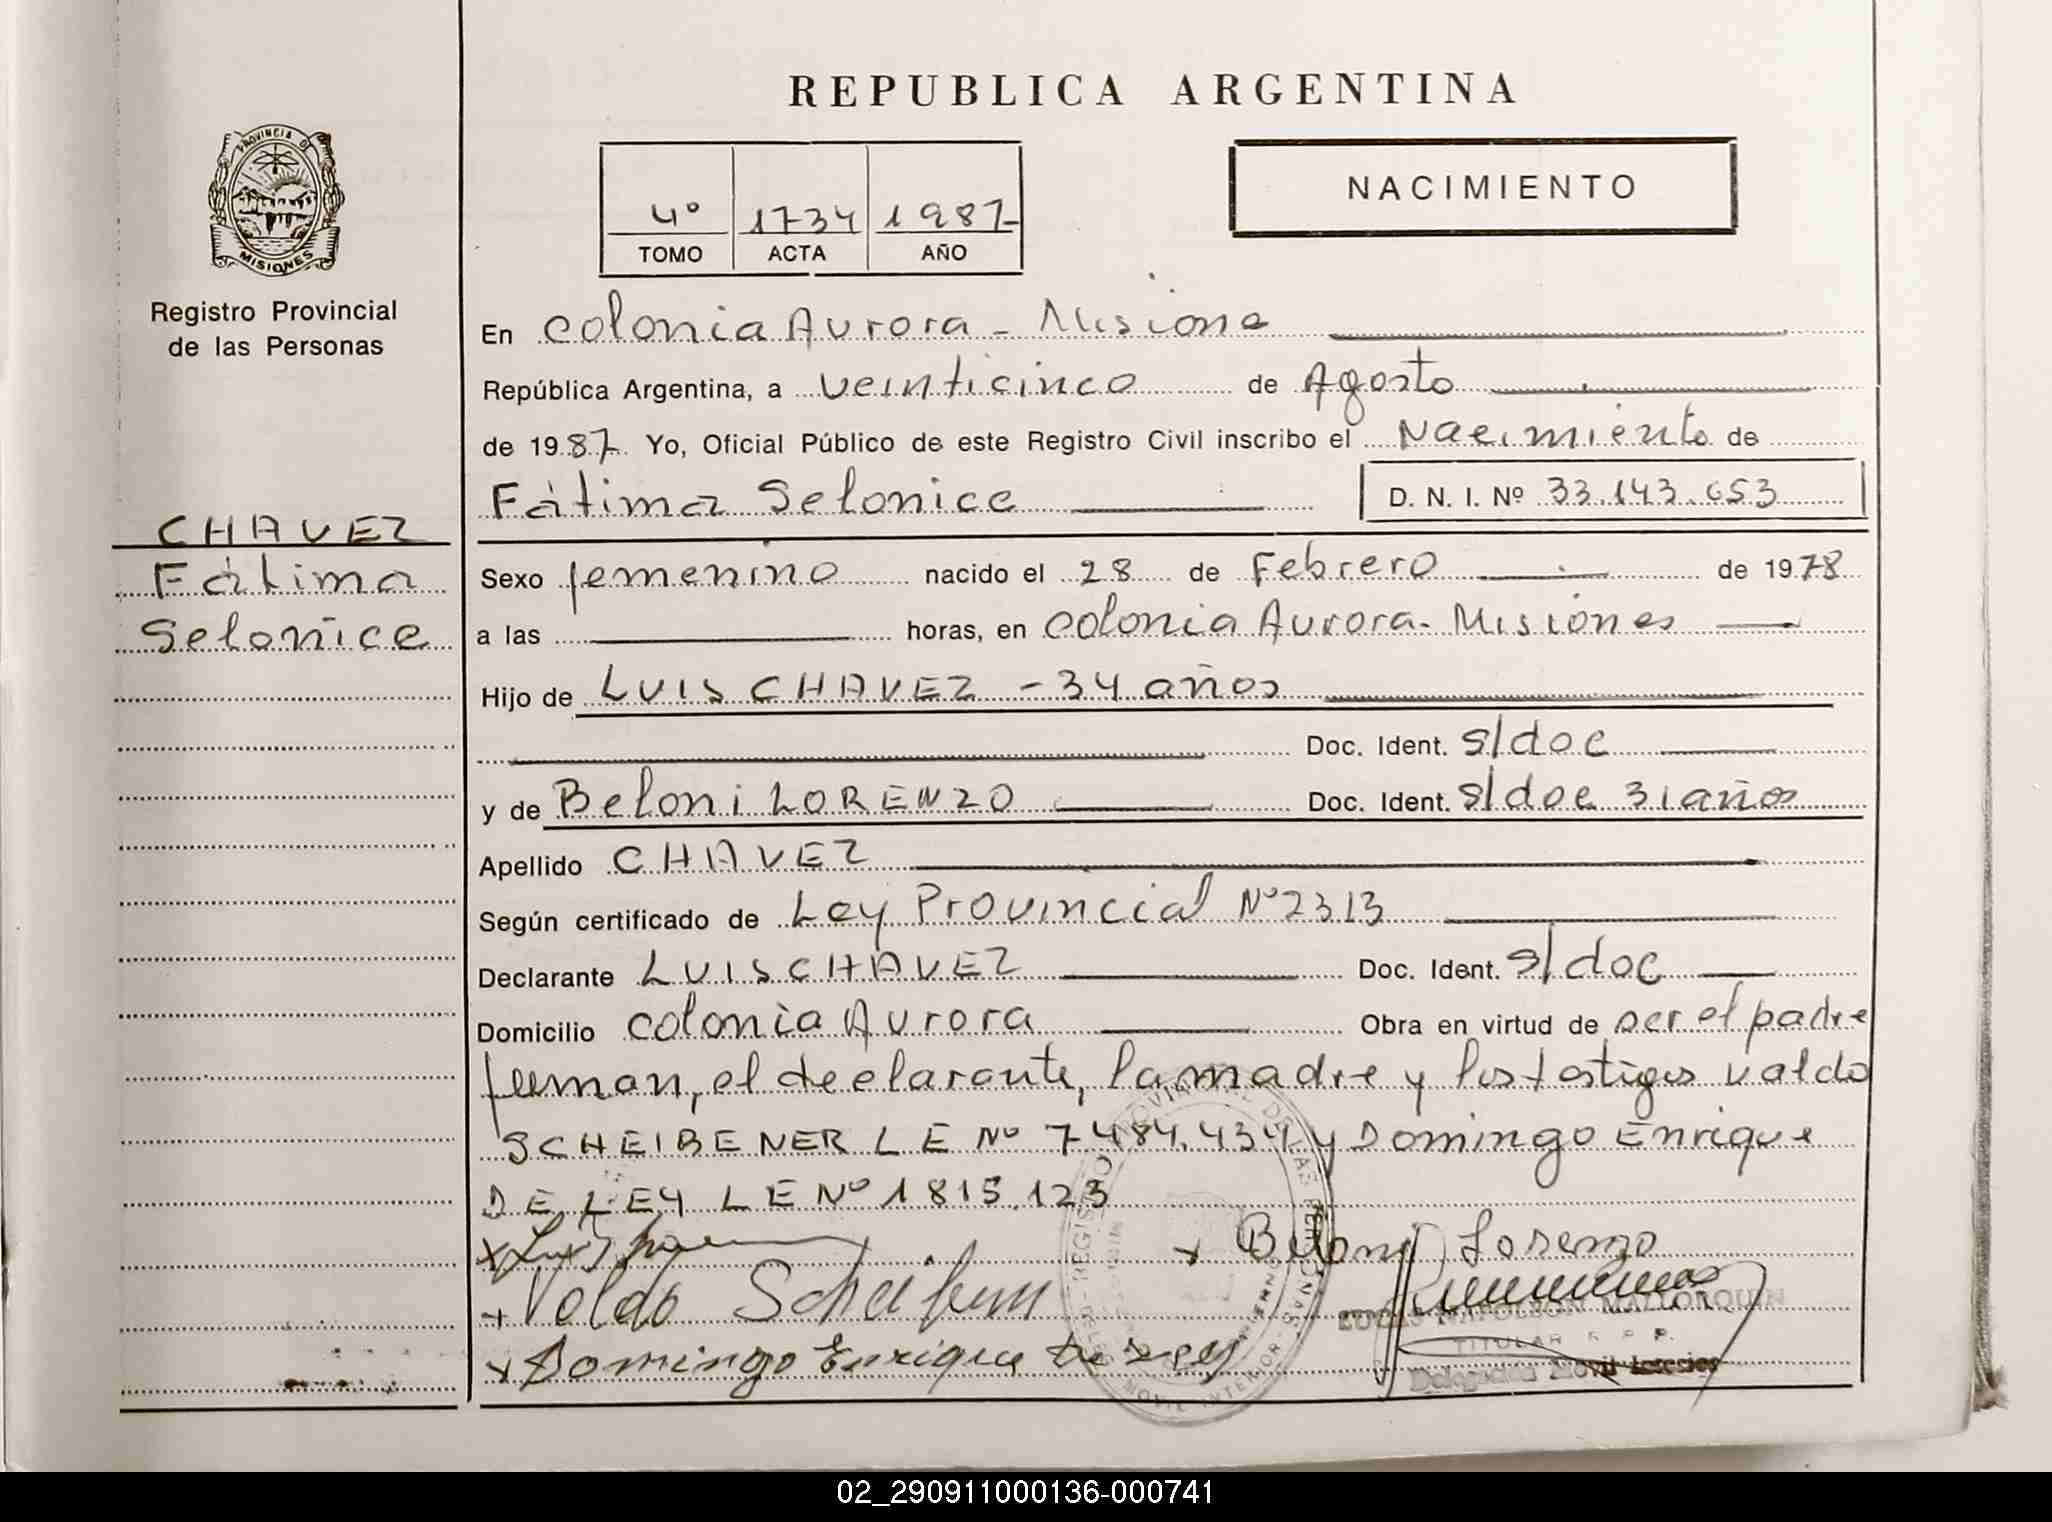 REPUBLICA ARGENTINA
PROVINCIA D
MISIONES
Registro Provincial
de las Personas
4º 1734 1987
TOMO ACTA AÑO
NACIMIENTO
En Colonia Aurora - Misione
República Argentina, a veinticinco de Agosto
de 1987 Yo, Oficial Público de este Registro Civil inscribo el Nacimiento de
Fátima Selonice D. N. I. Nº 33.143.653
CHAVEZ
Fátima
Selonice
Sexo femenino nacido el 28 de Febrero de 1978
a las horas, en Colonia Aurora - Misiones
Hijo de LUIS CHAVEZ - 34 años
Doc. Ident. s/doc
y de Beloni LORENZO Doc. Ident. s/doc 31 años
Apellido CHAVEZ
Según certificado de Ley Provincial Nº 2313
Declarante LUIS CHAVEZ Doc. Ident. s/doc
Domicilio Colonia Aurora Obra en virtud de ser el padre
firman, el declarante, la madre y los testigos Valdo
SCHEIBENER L E Nº 7.484.434 y Domingo Enrique
DE LEY L E Nº 1815.123
Beloni Lorenzo
Valdo
Domingo Enrique De Ley
LUCAS NAPOLEON MALLORQUIN
TITULAR R. P. P.
Delegación Movil
02_290911000136-000741